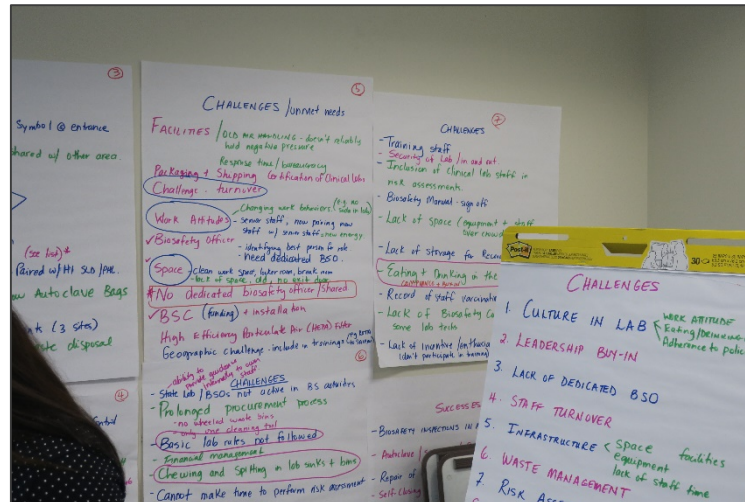 ③
Symbol @ entrance
shared w/ other area.
(see list)*
Paired w/HI SLD/PHL.
Autoclave Bags
(3 sites)
disposal
④
⑤
CHALLENGES /unmet needs
FACILITIES / OLD AIR HANDLING - doesn't reliably
hold negative pressure
Response time/bureaucracy
Packaging + Shipping Certification of Clinical labs
Challenge - turnover
Work Attitudes
Changing work behaviors
- senior staff, now pairing new
staff w/ senior staff
new energy
✓ Biosafety Officer
- identifying best person for role
need dedicated BSO.
Space
- clean work space, locker room, break room
- lack of space, old, no exit door
* No dedicated biosafety officer/shared
✓ BSC (funding) + installation
High Efficiency Particulate Air (HEPA) Filter
Geographic Challenge - include in trainings
⑥
ability to
provide guidance
internally to own
staff
CHALLENGES
- State lab/BSOs not active in BS activities
- Prolonged procurement process
- no wheeled waste bins
- only one cleaning tool
- Basic lab rules not followed
- Financial management
- Chewing and Spitting in lab sinks + bins
- Cannot make time to perform risk assessment
⑦
CHALLENGES
- Training staff
- Security of Lab/in and out
- Inclusion of Clinical lab staff in
risk assessments
- Biosafety Manual - sign off
- Lack of Space (equipment + staff
over crowd
- Lack of Storage for
- Eating + Drinking in the
- Record of staff vaccinatio
- Lack of Biosafety
some lab
- Lack of Incentive
(don't participate in training)
SUCCESSES
- BIOSAFETY INSPECTIONS IN
- Autoclave
- Repair of
- Self-Closing
Post-it
30
CHALLENGES
1. CULTURE IN LAB
WORK ATTITUDE
Eating/DRINKING
Adherence to polic
2. LEADERSHIP BUY-IN
3. LACK OF DEDICATED BSO
4. STAFF TURNOVER
5. INFRASTRUCTURE
space facilities
equipment
lack of staff time
6. WASTE MANAGEMENT
7. RISK ASSE